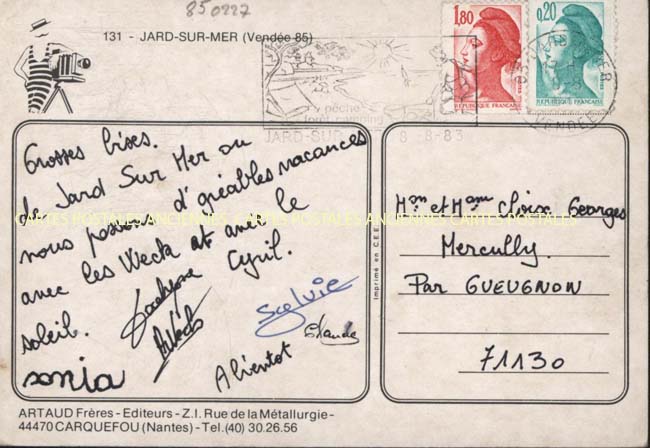 850227
131 - JARD-SUR-MER (Vendée 85)
1,80
0,20
REPUBLIQUE FRANÇAISE
REPUBLIQUE FRANÇAISE
pêche
forêt camping
JARD-SUR
8-8-83
VENDEE
Grosses bises.
de Jard Sur Mer ou
nous passons d'agréables vacances
avec les Weck et avec le
soleil. Cyril.
Jocelyne
Sylvie
Claude
sonia
A bientot
CARTES POSTALES ANCIENNES CARTES POSTALES ANCIENNES CARTES POSTALES
Imprimé en C.E.E.
Mr et Mme Choix Georges
Mercully
Par GUEUGNON
71130
ARTAUD Frères - Editeurs - Z.I. Rue de la Métallurgie -
44470 CARQUEFOU (Nantes) - Tel. (40) 30.26.56